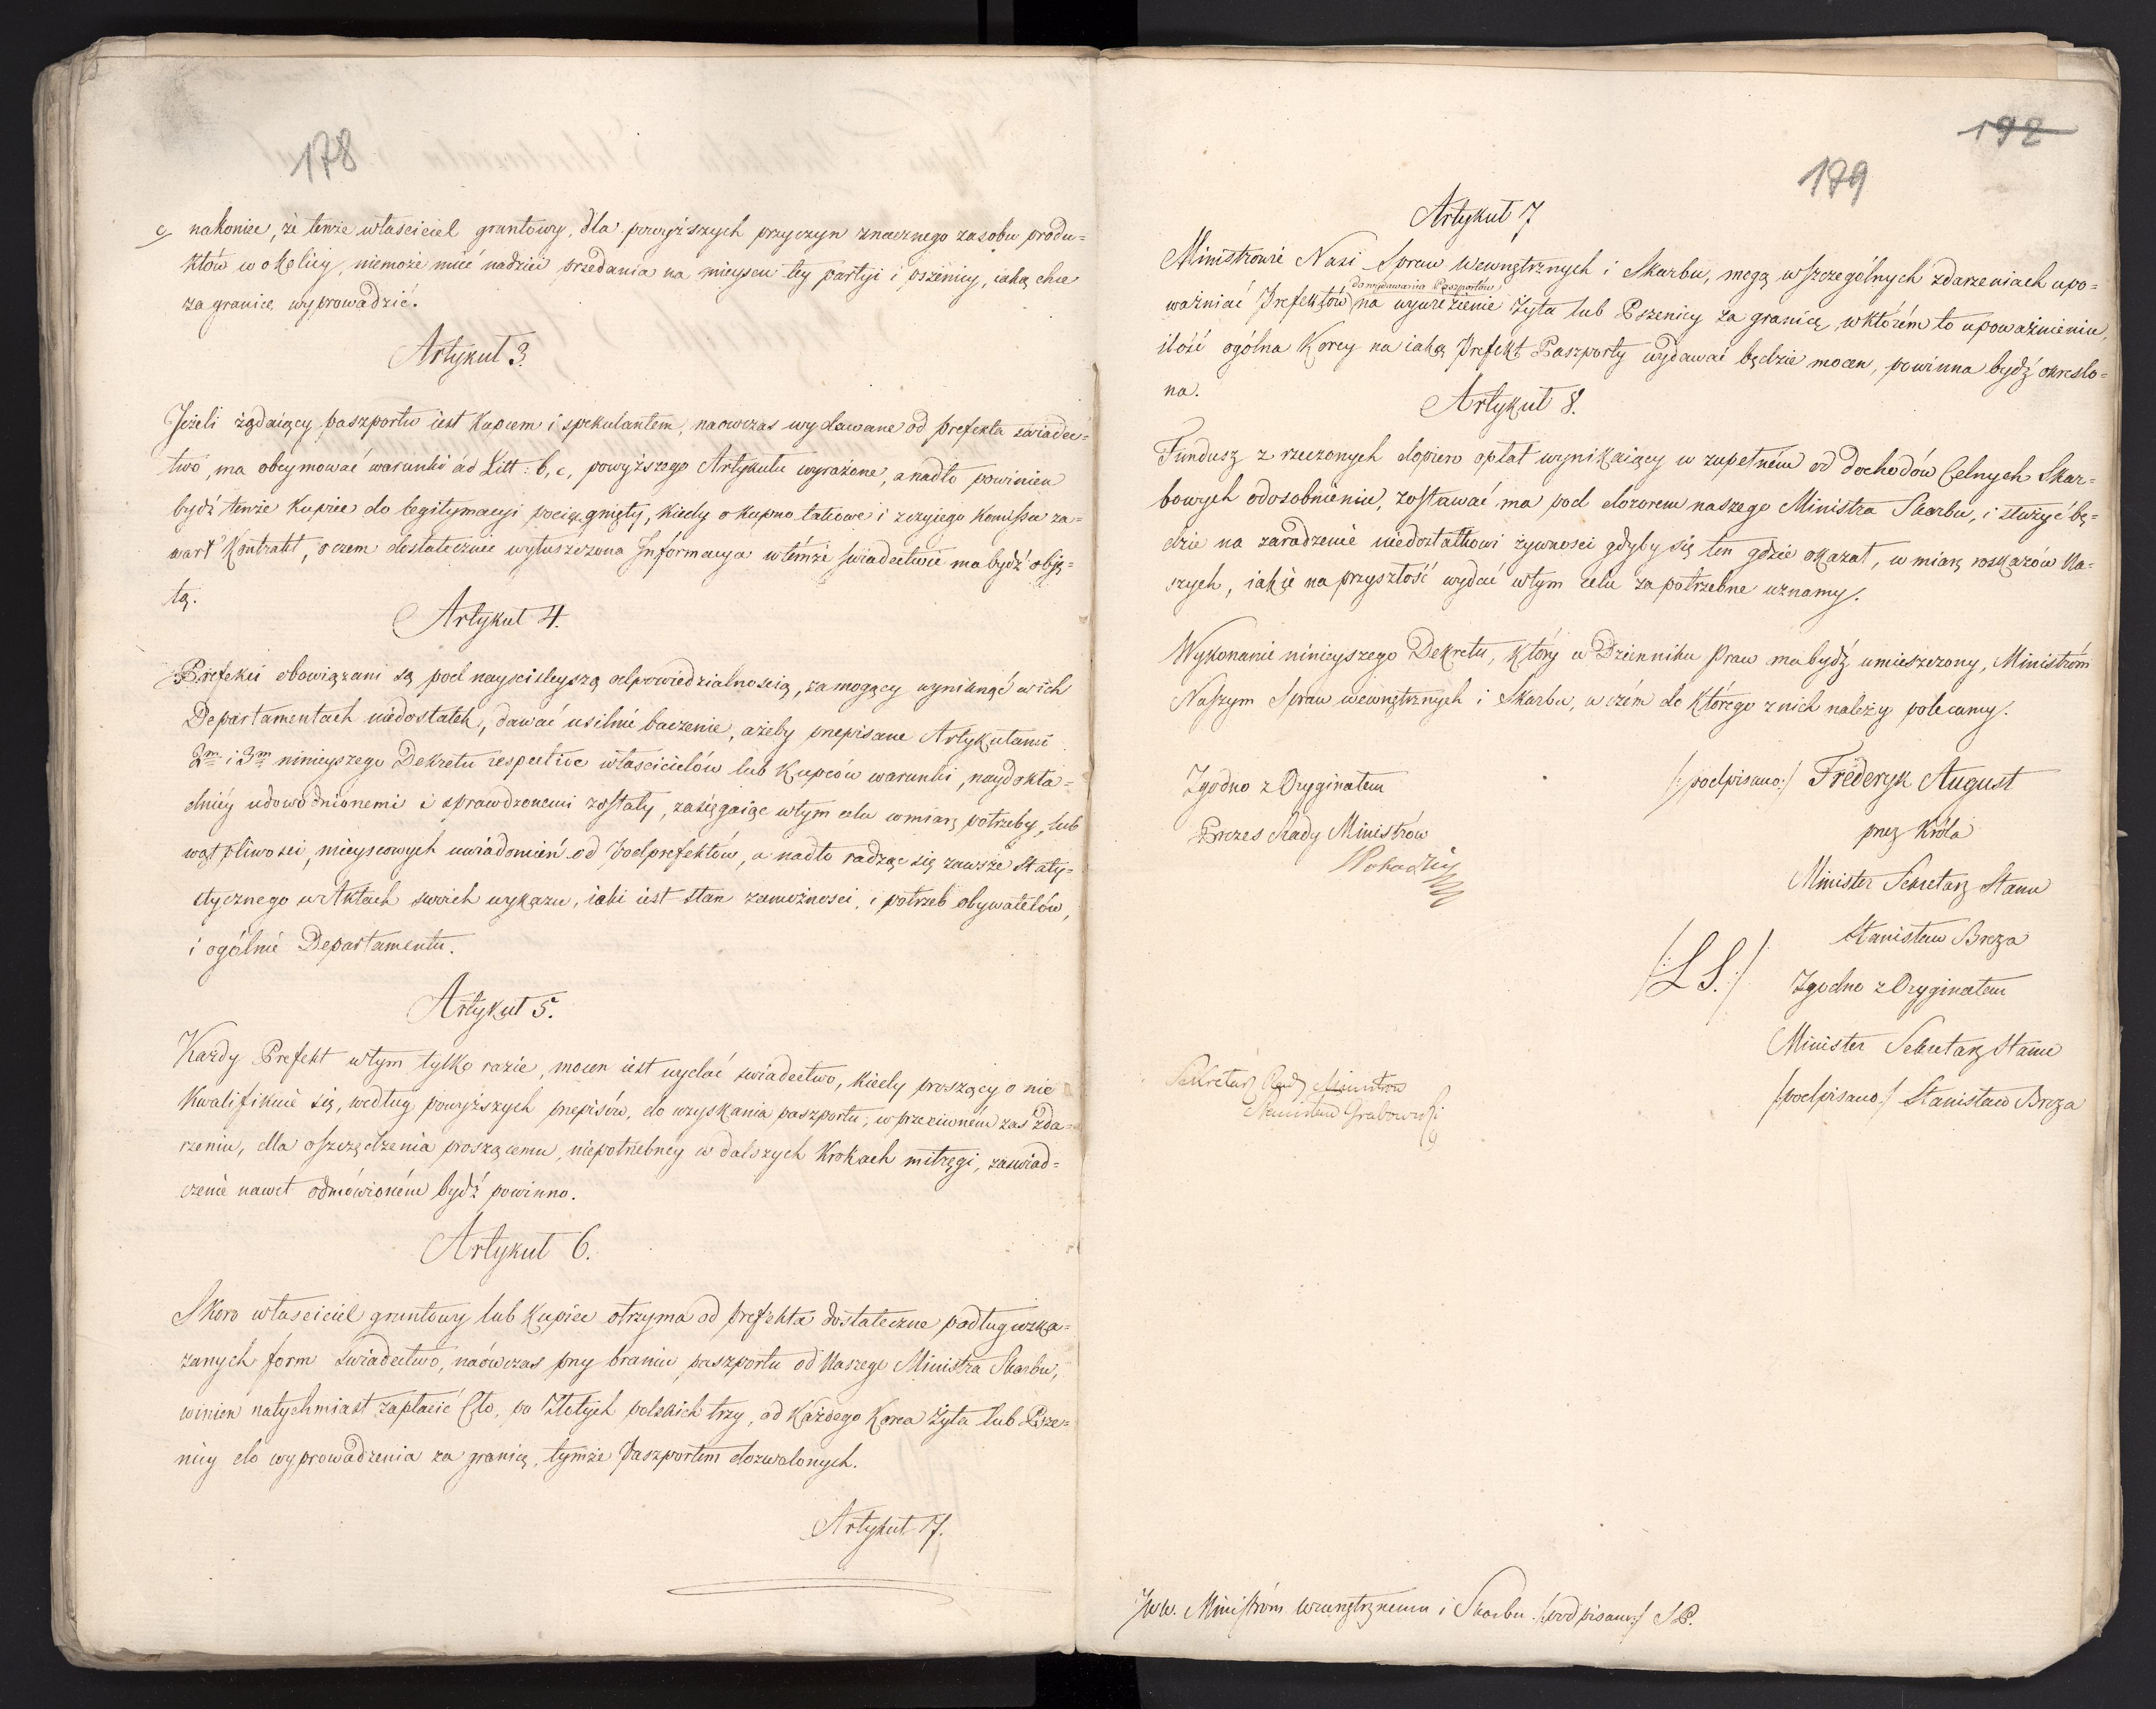 178
c, nakoniec, że tenże właściciel gruntowy, dla powyższych przyczyn znacznego zasobu produ=
któw w okolicy, niemoże mieć nadziei przedania na mieyscu tey partyi i pszenicy, iaką chce
za granicę wyprowadzić.
Artykuł 3.
Jeżeli żądaiący paszportu iest Kupcem i spekulantem, naowczas wydawane od prefekta świadec=
two, ma obeymować warunki ad Litt: b, c, powyższego Artykułu wyrażone, a nadto powinien
bydź tenże Kupiec do legitymacyi pociągnięty, kiedy o kupno takowe i z czyiego Komissu za=
warł Kontrakt, o czem dostatecznie wyłuszczona Informacya w témże świadectwie ma bydź obję=
tą.
Artykuł 4.
Prefekci obowiązani są pod nayściśleyszą odpowiedzialnością, za mogący wyniknąć w ich
Departamentach niedostatek, dawać usilnie baczenie, ażeby przepisane Artykułami
2m i 3m ninieyszego Dekretu respective właścicielów lub Kupców warunki, naydokła=
dniéy udowodnionemi i sprawdzonemi zostały, zasięgaiąc w tym celu w miarę potrzeby, lub
wątpliwości, mieyscowych uwiadomień od Podprefektów, a nadto radząc się zawsze Staty=
stycznego w Aktach swoich wykazu, iaki iest stan zamożności, i potrzeb obywatelów,
i ogólnie Departamentu.
Artykuł 5.
Każdy Prefekt w tym tylko razie, mocen iest wydać świadectwo, kiedy proszący o nie
Kwalifikuie się, według powyższych przepisów, do uzyskania paszportu; w przeciwném zaś zda=
rzeniu, dla oszczędzenia proszącemu, niepotrzebney w dalszych Krokach mitręgi, zaświad=
czenie nawet odmówioném bydź powinno.
Artykuł 6.
Skoro właściciel gruntowy lub Kupiec otrzyma od prefekta dostateczne podług wska=
zanych form świadectwo, naówczas przy braniu paszportu od Naszego Ministra Skarbu,
winien natychmiast zapłacić Cło, po Złotych polskich trzy, od Każdego Korca Żyta lub Psze=
nicy do wyprowadzenia za granicę, tymże Paszportem dozwolonych.
Artykuł 7.
192
179
Artykuł 7
Ministrowie Nasi Spraw Wewnętrznych i Skarbu, mogą w szczególnych zdarzeniach upo=
do wydawania Paszportów
ważniać Prefektów na wywiezienie Żyta lub Pszenicy za granicę, w którém to upoważnieniu,
ilość ogólna Korcy na iaką Prefekt Paszporty wydawać będzie mocen, powinna bydź określo=
na.
Artykuł 8.
Fundusz z rzeczonych dopiero opłat wynikaiący w zupełném od dochodów Celnych Skar=
bowych odosobnieniu, zostawać ma pod dozorem naszego Ministra Skarbu, i służyć bę=
dzie na zaradzenie niedostatkowi żywności gdyby się ten gdzie okazał, w miarę roskazów Na=
szych, iakie na przyszłość wydać w tym celu za potrzebne uznamy.
Wykonanie ninieyszego Dekretu, Który w Dzienniku Praw ma bydź umieszczony, Ministróm
Naszym Spraw wewnętrznych i Skarbu, w czém do Którego z nich należy polecamy.
Zgodno z Oryginałem
/:podpisano:/ Fréderyk August
Prezes Rady Ministrów
przez Króla
Minister Sekretarz Stanu
Stanisław Breza
/:L S.:/
Zgodno z Oryginałem
Minister Sekretarz Stanu
/podpisano/ Stanisław Breza
Sekretarz Rady Ministrów
Stanisław Grabowski
JWW. Ministróm Wewnętrznemu i Skarbu /:podpisano:/ SB.